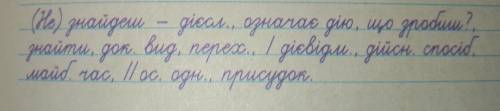 (Не) знайдеш – дієсл., означає дію, що зробиш?,
знайти, док. вид, перех., I дієвідм., дійсн. спосіб.
майб. час, II ос. одн., присудок.